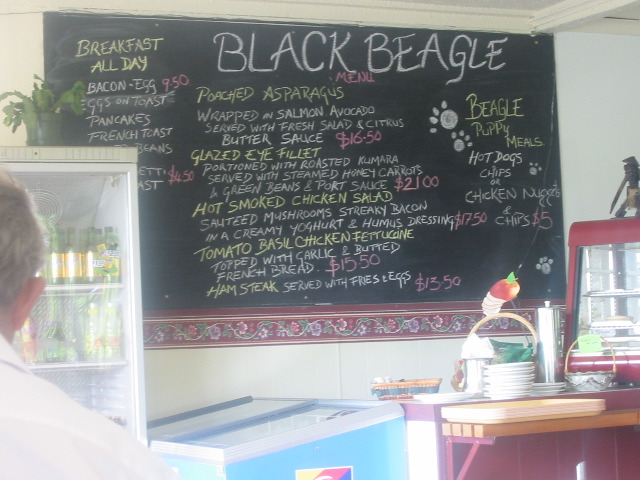 BREAKFAST
ALL DAY
BACON-EGG 9.50
EGGS ON TOAST
PANCAKES
FRENCH TOAST
$4.50
BLACK BEAGLE
MENU
POACHED ASPARAGUS
WRAPPED IN SALMON AVOCADO
SERVED WITH FRESH SALAD & CITRUS
BUTTER SAUCE $16.50
GLAZED EYE FILLET
PORTIONED WITH ROASTED KUMARA
SERVED WITH STEAMED HONEY CARROTS
& GREEN BEANS & PORT SAUCE $21.00
HOT SMOKED CHICKEN SALAD
SAUTEED MUSHROOMS STREAKY BACON
IN A CREAMY YOGHURT & HUMUS DRESSING $17.50
TOMATO BASIL CHICKEN FETTUCINE
TOPPED WITH GARLIC & BUTTED
FRENCH BREAD. $15.50
HAM STEAK SERVED WITH FRIES & EGGS $13.50
BEAGLE
PUPPY
MEALS
HOT DOGS
CHIPS
OR
CHICKEN NUGGETS
& CHIPS $5